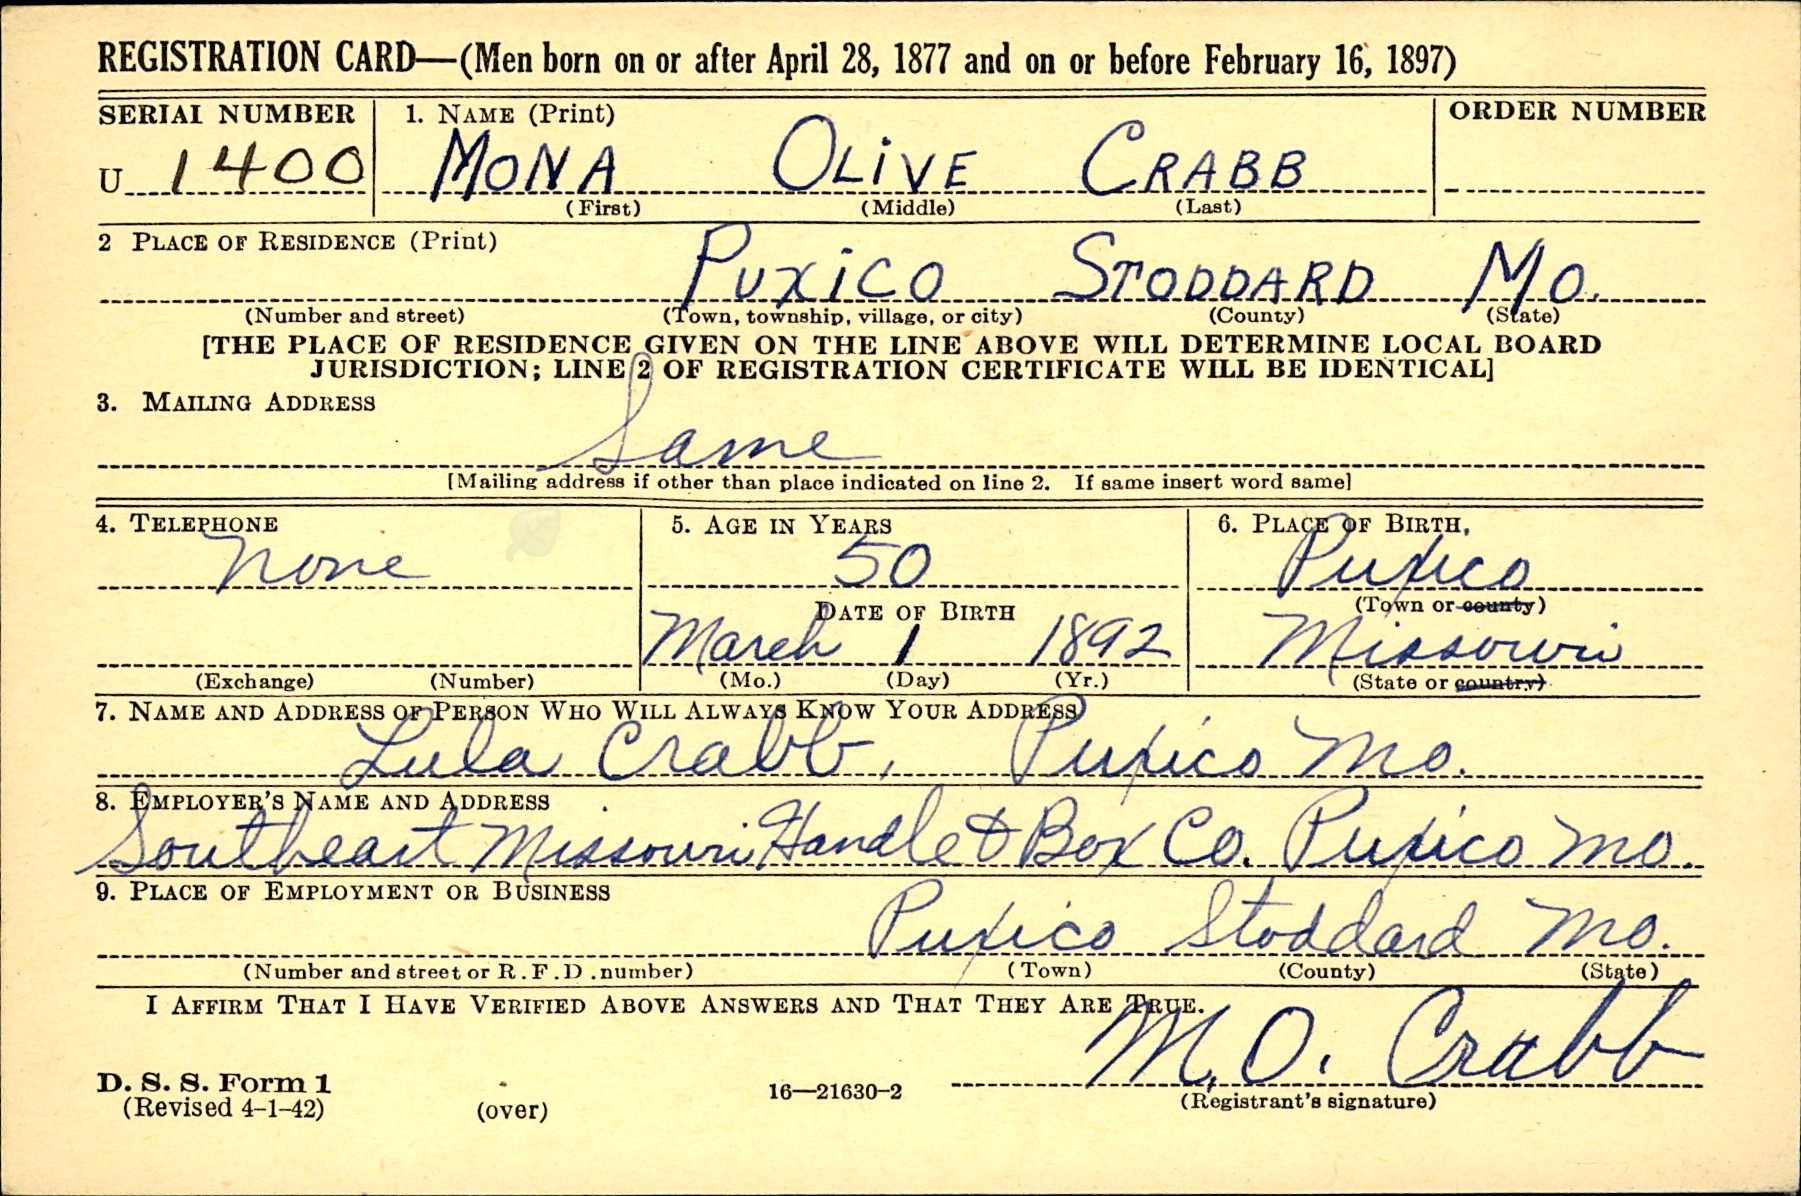 REGISTRATION CARD—(Men born on or after April 28, 1877 and on or before February 16, 1897)
SERIAL NUMBER 1. NAME (Print) ORDER NUMBER
U 1400 MONA OLIVE CRABB
(First) (Middle) (Last)
2 PLACE OF RESIDENCE (Print)
PUXICO STODDARD MO.
(Number and street) (Town, township, village, or city) (County) (State)
[THE PLACE OF RESIDENCE GIVEN ON THE LINE ABOVE WILL DETERMINE LOCAL BOARD
JURISDICTION; LINE 2 OF REGISTRATION CERTIFICATE WILL BE IDENTICAL]
3. MAILING ADDRESS
Same
[Mailing address if other than place indicated on line 2. If same insert word same]
4. TELEPHONE 5. AGE IN YEARS 6. PLACE OF BIRTH.
None 50 Puxico
DATE OF BIRTH (Town or county)
March 1 1892 Missouri
(Exchange) (Number) (Mo.) (Day) (Yr.) (State or country)
7. NAME AND ADDRESS OF PERSON WHO WILL ALWAYS KNOW YOUR ADDRESS
Lula Crabb, Puxico Mo.
8. EMPLOYER'S NAME AND ADDRESS
Southeast Missouri Handle & Box Co. Puxico Mo.
9. PLACE OF EMPLOYMENT OR BUSINESS
Puxico Stoddard Mo.
(Number and street or R.F.D. number) (Town) (County) (State)
I AFFIRM THAT I HAVE VERIFIED ABOVE ANSWERS AND THAT THEY ARE TRUE.
M.O. Crabb
D. S. S. Form 1
(Revised 4-1-42) (over) 16—21630-2 (Registrant's signature)